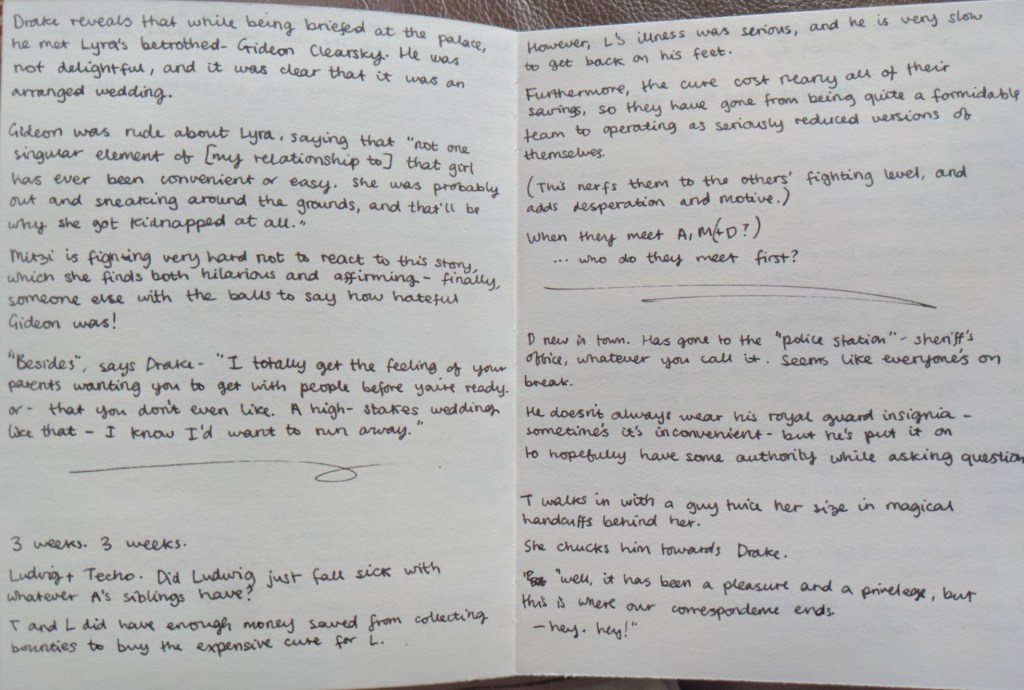 Drake reveals that while being briefed at the palace,
he met Lyra's betrothed - Gideon Clearsky. He was
not delightful, and it was clear that it was an
arranged wedding.
Gideon was rude about Lyra, saying that "not one
singular element of [my relationship to] that girl
has ever been convenient or easy. She was probably
out and sneaking around the grounds, and that'll be
why she got kidnapped at all."
Mitzi is fighting very hard not to react to this story,
which she finds both hilarious and affirming - finally,
someone else with the balls to say how hateful
Gideon was!
"Besides", says Drake - "I totally get the feeling of your
parents wanting you to get with people before you're ready.
or - that you don't even like. A high-stakes wedding
like that - I know I'd want to run away."
3 weeks. 3 weeks.
Ludwig + Techo. Did Ludwig just fall sick with
whatever A's siblings have?
T and L did have enough money saved from collecting
bounties to buy the expensive cure for L.
However, L's illness was serious, and he is very slow
to get back on his feet.
Furthermore, the cure cost nearly all of their
savings, so they have gone from being quite a formidable
team to operating as seriously reduced versions of
themselves.
(This nerfs them to the others' fighting level, and
adds desperation and motive.)
When they meet A, M (+D?)
... who do they meet first?
D new in town. Has gone to the "police station" - sheriff's
office, whatever you call it. Seems like everyone's on
break.
He doesn't always wear his royal guard insignia -
sometime's it's inconvenient - but he's put it on
to hopefully have some authority while asking question
T walks in with a guy twice her size in magical
handcuffs behind her.
She chucks him towards Drake.
"well, it has been a pleasure and a privelege, but
this is where our correspondence ends.
- hey. hey!"